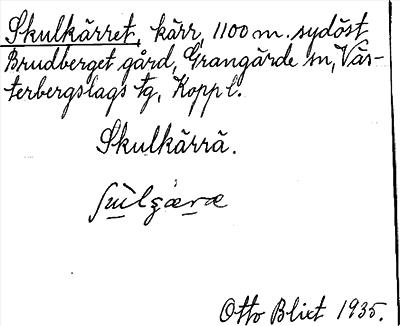 Skulkärret, kärr, 1100 m. sydöst
Brudberget gård, Grangärde sn, Väs-
terbergslags tg, Koppl.
Skulkärrä.
Otto Blixt 1935.